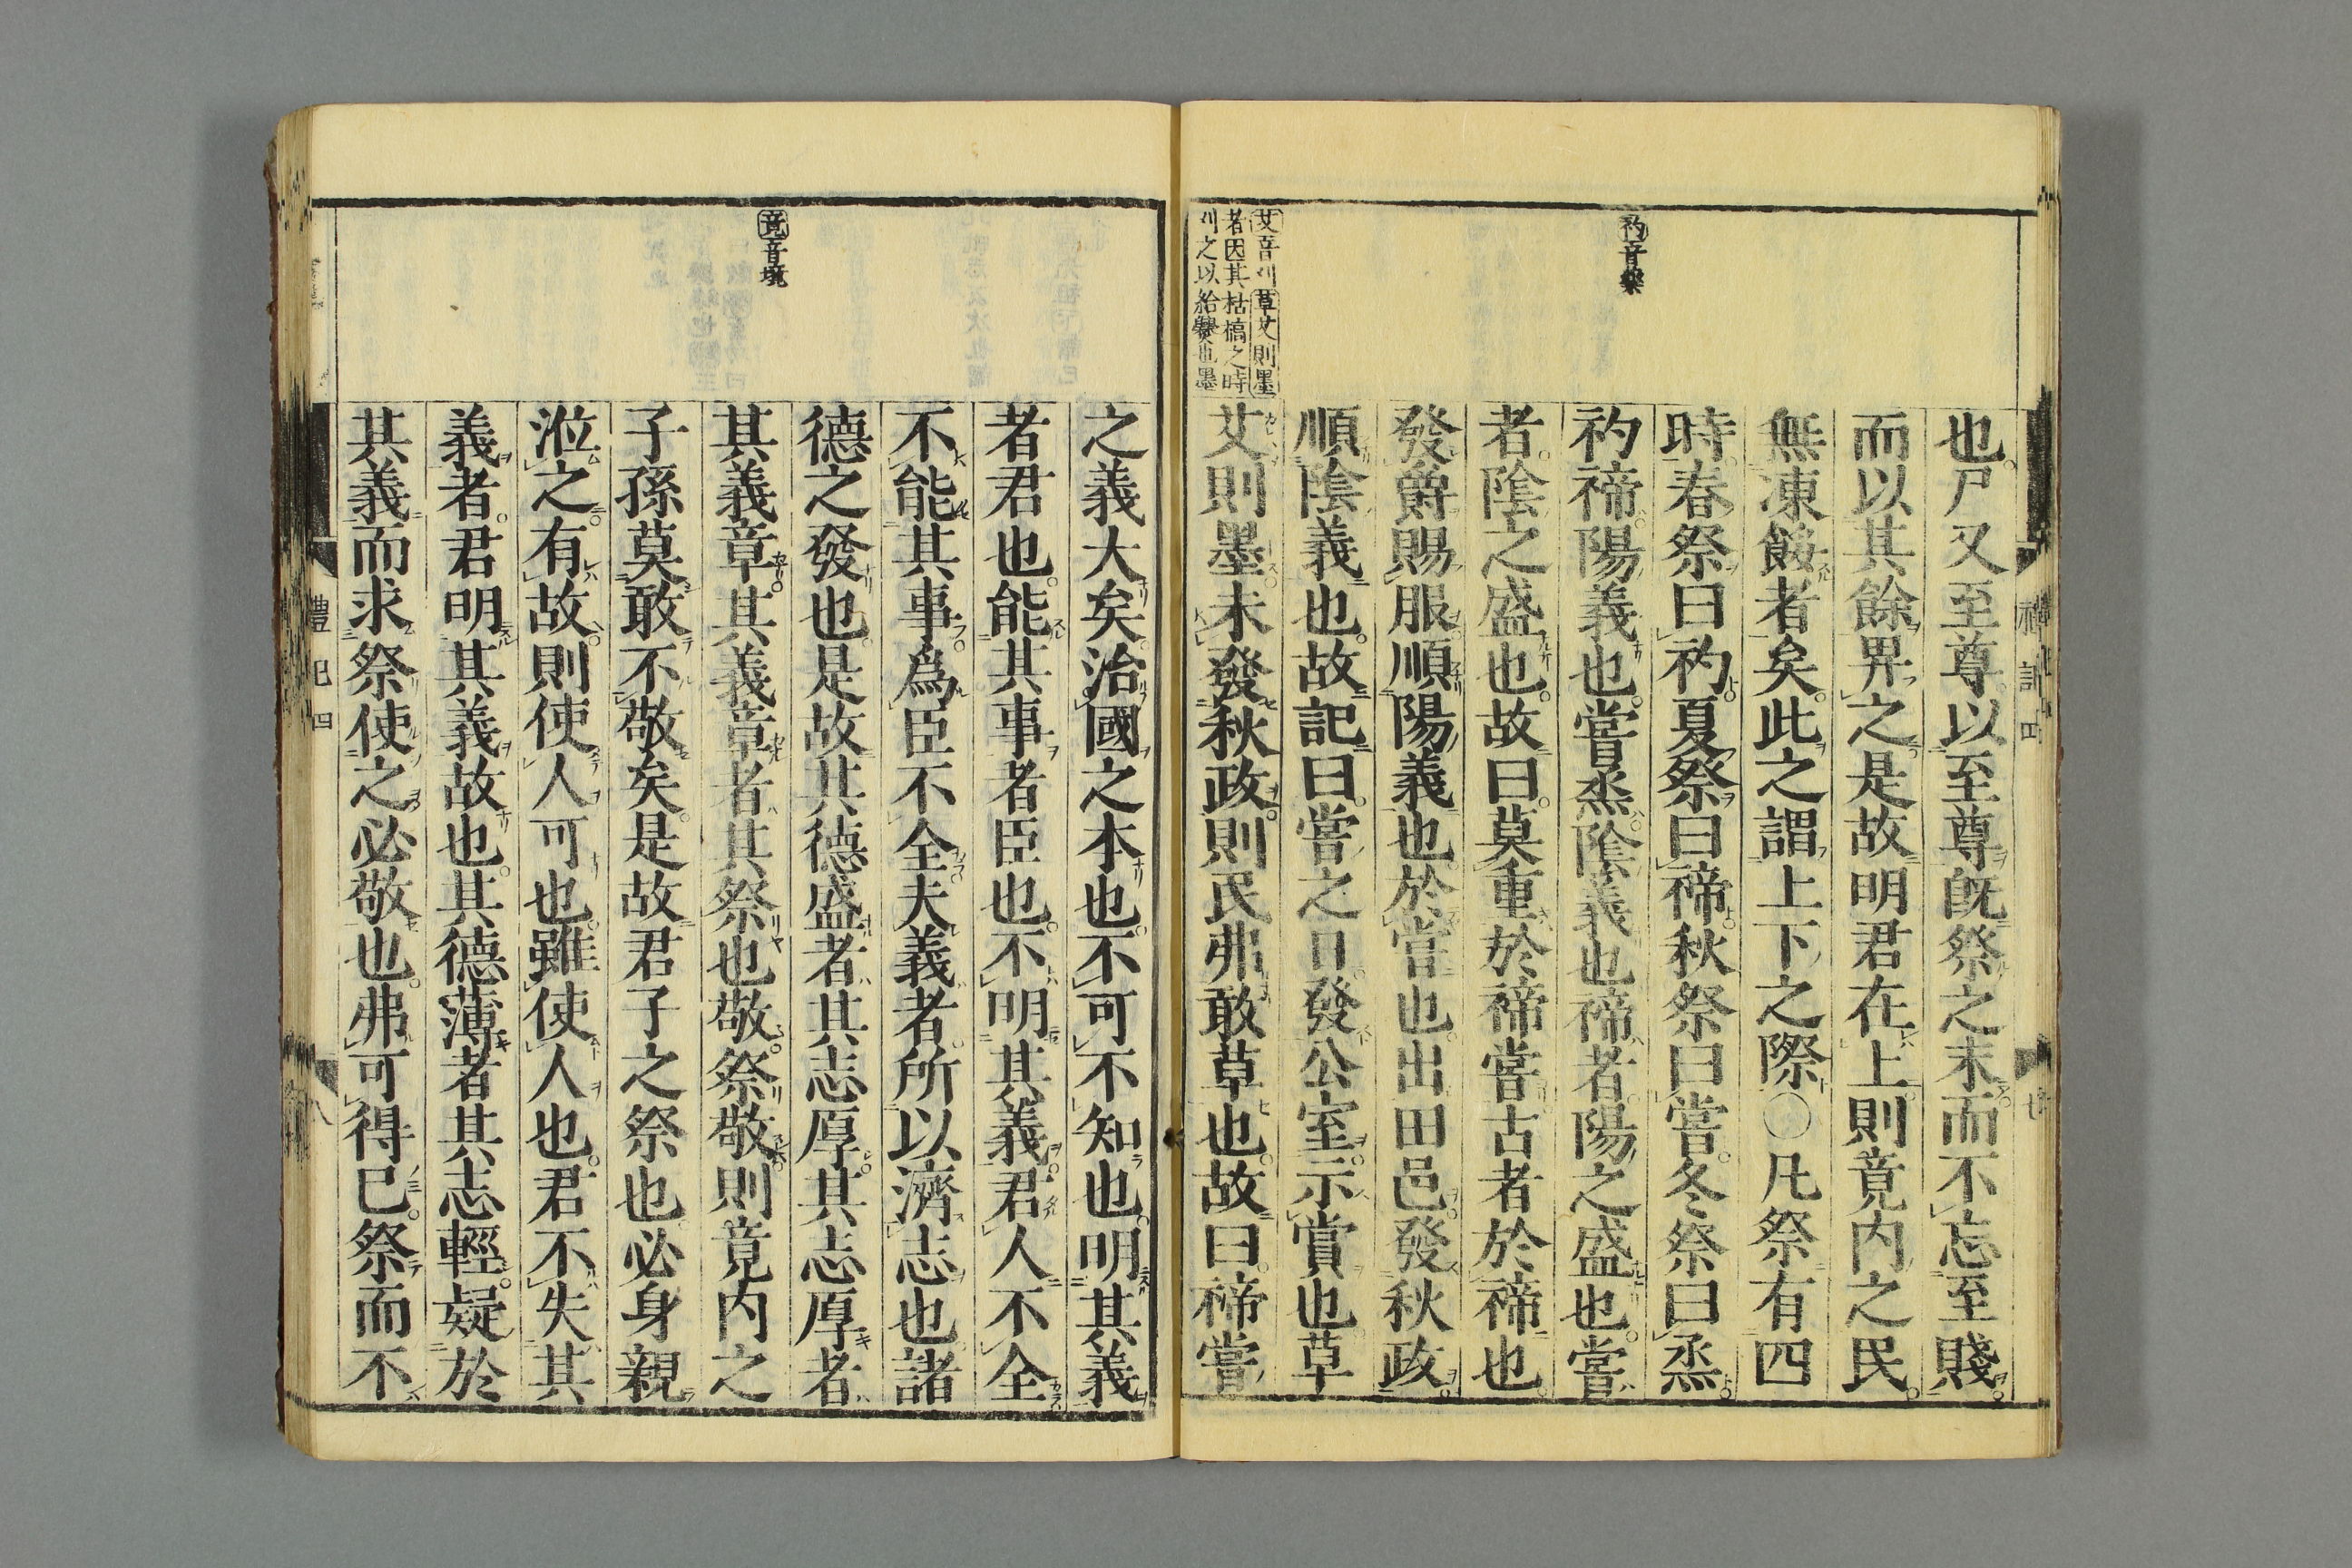 礿音藥
艾音刈草艾則墨
者因其枯槁之時
刈之以給爨也墨
也尸又至尊以至尊既祭之末而不忘至賤
而以其餘畀之是故明君在上則竟内之民
無凍餒者矣此之謂上下之際○凡祭有四
時春祭曰礿夏祭曰禘秋祭曰嘗冬祭曰烝
礿禘陽義也嘗烝陰義也禘者陽之盛也嘗
者陰之盛也故曰莫重於禘嘗古者於禘也
發爵賜服順陽義也於嘗也出田邑發秋政
順陰義也故記曰嘗之日發公室示賞也草
艾則墨未發秋政則民弗敢草也故曰禘嘗
禮記四
七
竟音境
之義大矣治國之本也不可不知也明其義
者君也能其事者臣也不明其義君人不全
不能其事爲臣不全夫義者所以濟志也諸
德之發也是故其德盛者其志厚其志厚者
其義章其義章者其祭也敬祭敬則竟内之
子孫莫敢不敬矣是故君子之祭也必身親
涖之有故則使人可也雖使人也君不失其
義者君明其義故也其德薄者其志輕疑於
其義而求祭使之必敬也弗可得已祭而不
禮記四
八